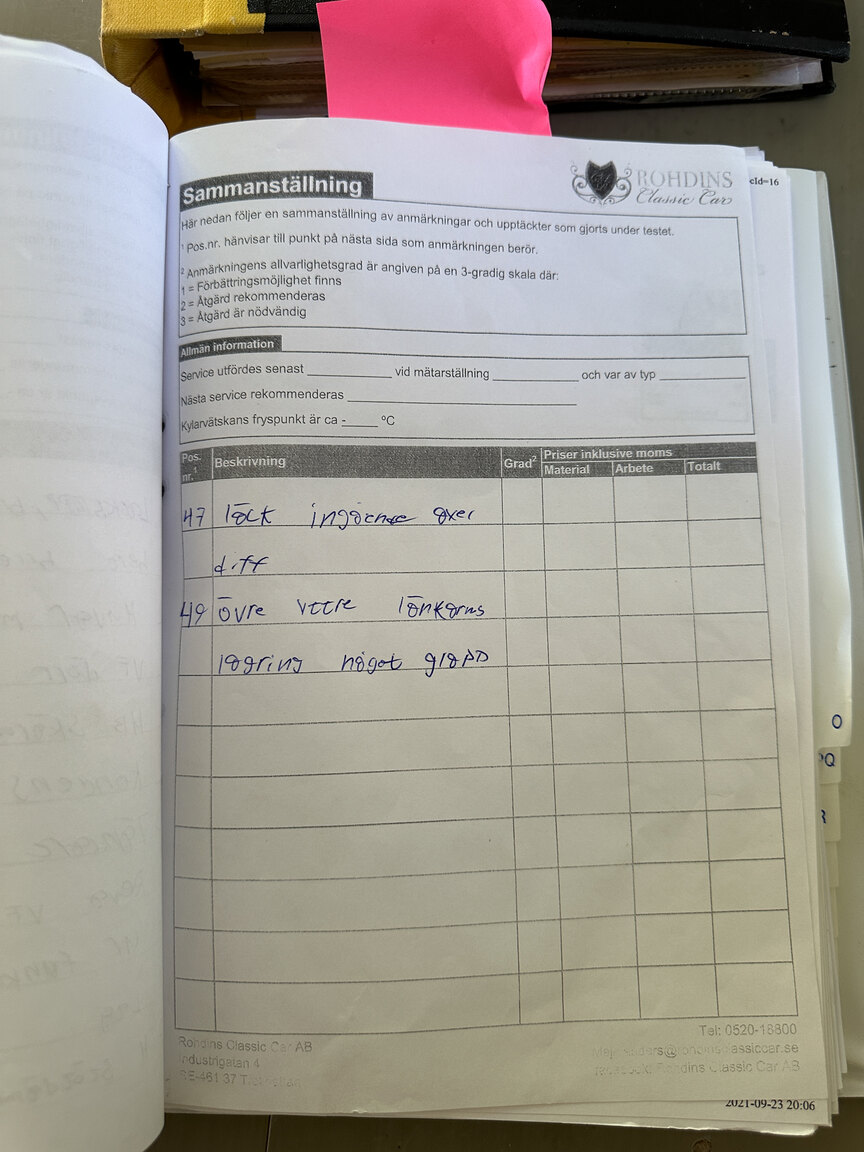 cId=16
ROHDINS
Classic Car
Sammanställning
Här nedan följer en sammanställning av anmärkningar och upptäckter som gjorts under testet.
¹ Pos.nr. hänvisar till punkt på nästa sida som anmärkningen berör.
² Anmärkningens allvarlighetsgrad är angiven på en 3-gradig skala där:
1 = Förbättringsmöjlighet finns
2 = Åtgärd rekommenderas
3 = Åtgärd är nödvändig
Allmän information
Service utfördes senast ____________ vid mätarställning ____________ och var av typ ____________
Nästa service rekommenderas ____________
Kylarvätskans fryspunkt är ca -_____ °C
Pos. nr.¹ Beskrivning Grad² Priser inklusive moms
Material Arbete Totalt
47 läck ingående axel
diff
49 övre yttre länkarms
lagring något glapp
O
PQ
R
Rohdins Classic Car AB
Industrigatan 4
SE-461 37
Tel: 0520-18800
Mejl: anders@rohdinsclassiccar.se
facebook: Rohdins Classic Car AB
2021-09-23 20:06